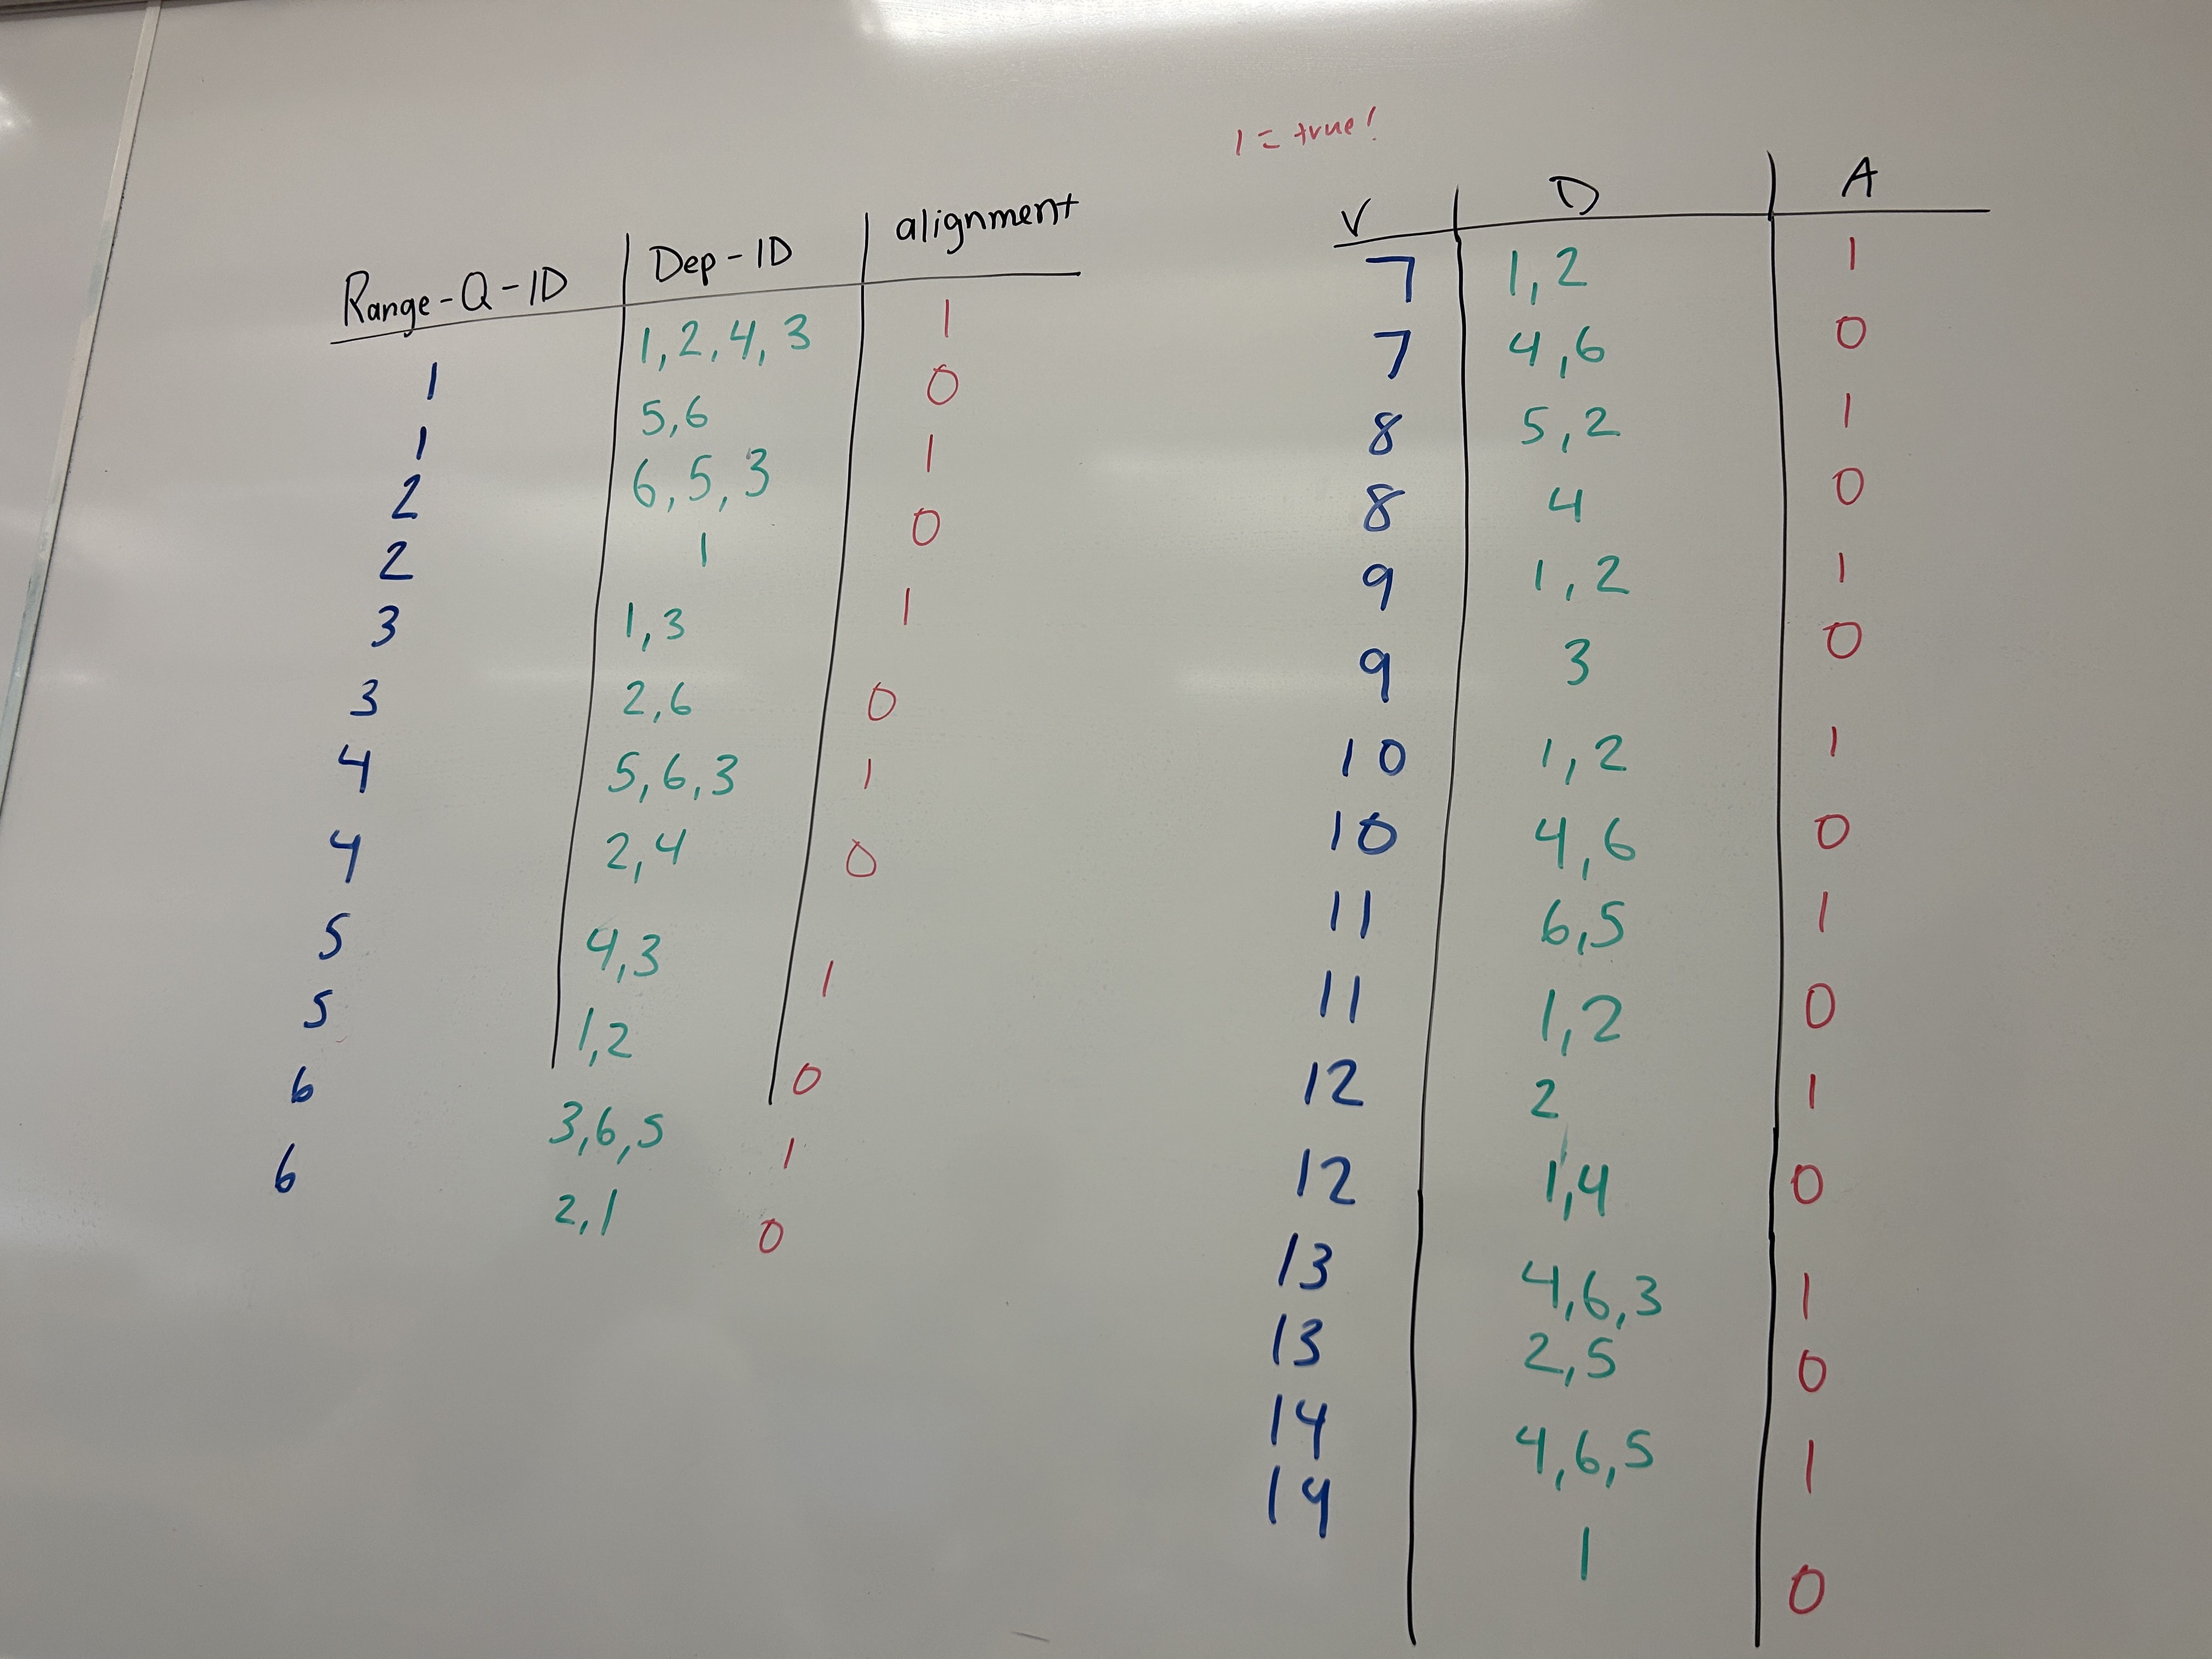 Range-Q-ID Dep-ID alignment
1 1,2,4,3 1
1 5,6 0
2 6,5,3 1
2 1 0
3 1,3 1
3 2,6 0
4 5,6,3 1
4 2,4 0
5 4,3 1
5 1,2 0
6 3,6,5 1
6 2,1 0
1 = true!
V D A
7 1,2 1
7 4,6 0
8 5,2 1
8 4 0
9 1,2 1
9 3 0
10 1,2 1
10 4,6 0
11 6,5 1
11 1,2 0
12 2 1
12 1,4 0
13 4,6,3 1
13 2,5 0
14 4,6,5 1
14 1 0